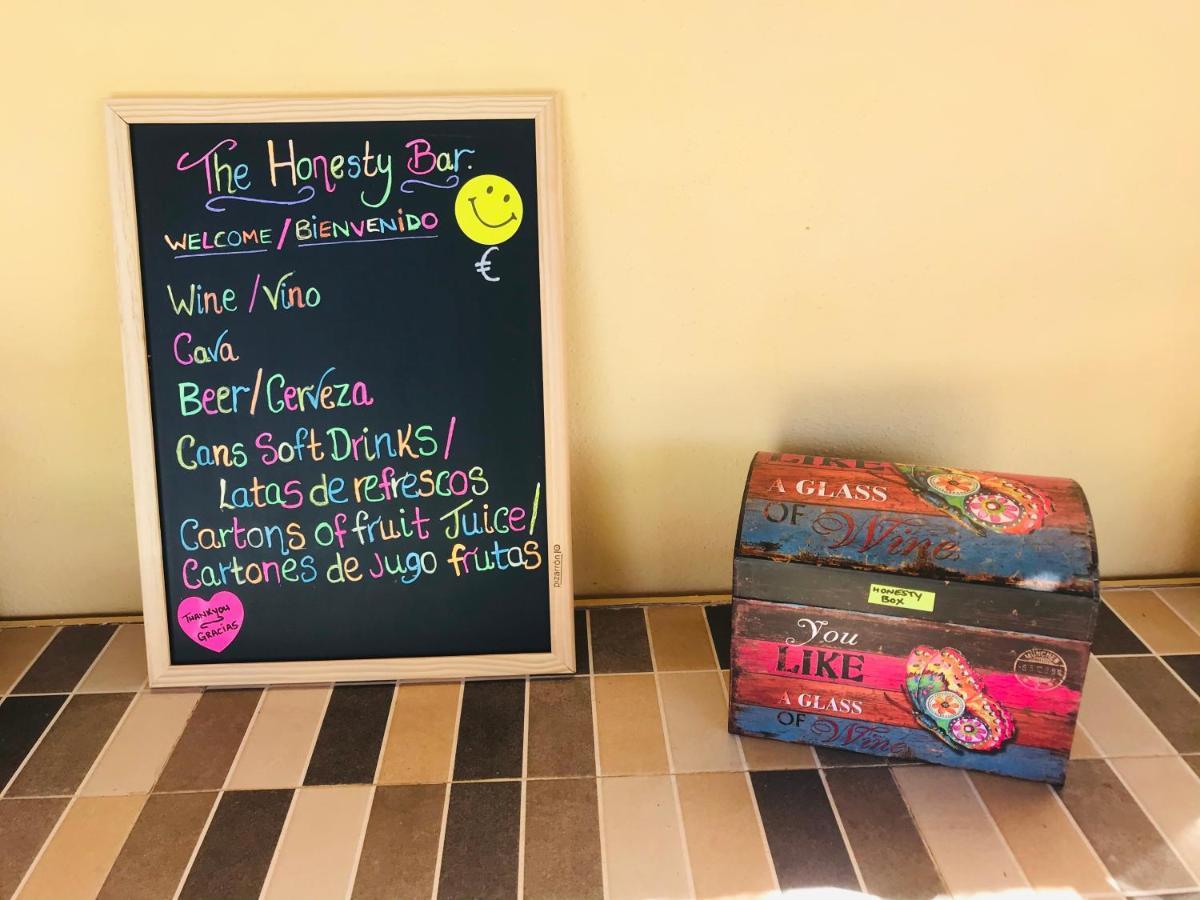 The Honesty Bar.
WELCOME / BIENVENIDO
€
Wine / Vino
Cava
Beer / Cerveza
Cans Soft Drinks /
Latas de refrescos
Cartons of fruit Juice /
Cartones de Jugo frutas
THANKYOU
GRACIAS
pizarrón
LIKE
A GLASS
OF Wine
HONESTY
BOX
You
LIKE
A GLASS
OF Wine
MÜNCHEN